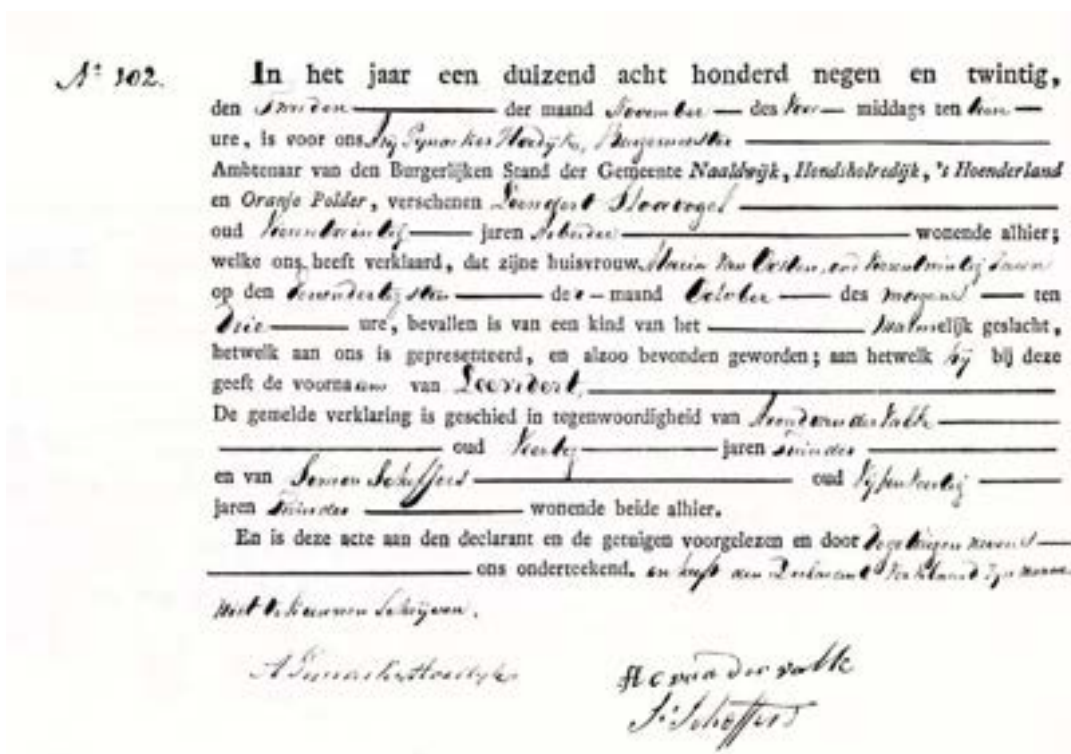 Nº 102. In het jaar een duizend acht honderd negen en twintig,
den der maand November des Voor middags ten
ure, is voor ons Pynacker Hordijk, Burgemeester
Ambtenaar van den Burgerlijken Stand der Gemeente Naaldwijk, Hondsholredijk, 's Hoenderland
en Oranje Polder, verschenen Leendert
oud jaren Arbeider wonende alhier;
welke ons heeft verklaard, dat zijne huisvrouw Maria van Oosten, oud jaren
op den der maand October des morgens ten
drie ure, bevallen is van een kind van het Mannelijk geslacht,
hetwelk aan ons is gepresenteerd, en alzoo bevonden geworden; aan hetwelk hij bij deze
geeft de voornaam van Leendert
De gemelde verklaring is geschied in tegenwoordigheid van van der Valk
oud Veertig jaren Tuinder
en van Simon Scheffers oud Vijf en Veertig
jaren Tuinder wonende beide alhier.
En is deze acte aan den declarant en de getuigen voorgelezen en door de getuigen nevens
ons onderteekend. en heeft den Declarant verklaard zyn naam
niet te kunnen schrijven.
A Pynacker Hordijk
van der valk
S: Scheffers